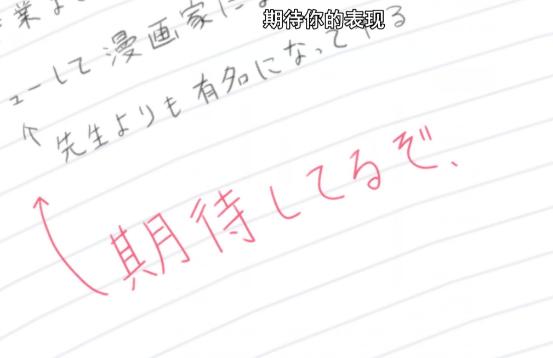 期待你的表现
業
ューして漫画家に
先生よりも有名になってやる
期待してるぞ、